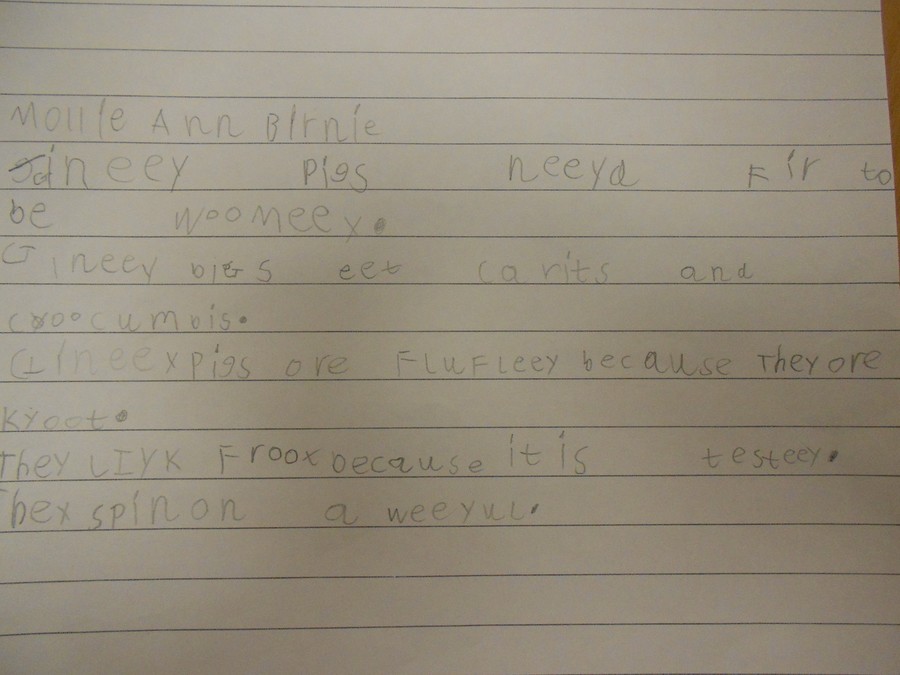 Mollie Ann Birnie
Gineey Pigs neeyd Fir to
be woomeey.
Gineey bigs eet carits and
croocumbis.
Gineey pigs ore FLUFLeey because They ore
kyoot.
They LIYK Froox because it is testeey.
They spin on a weeyul.